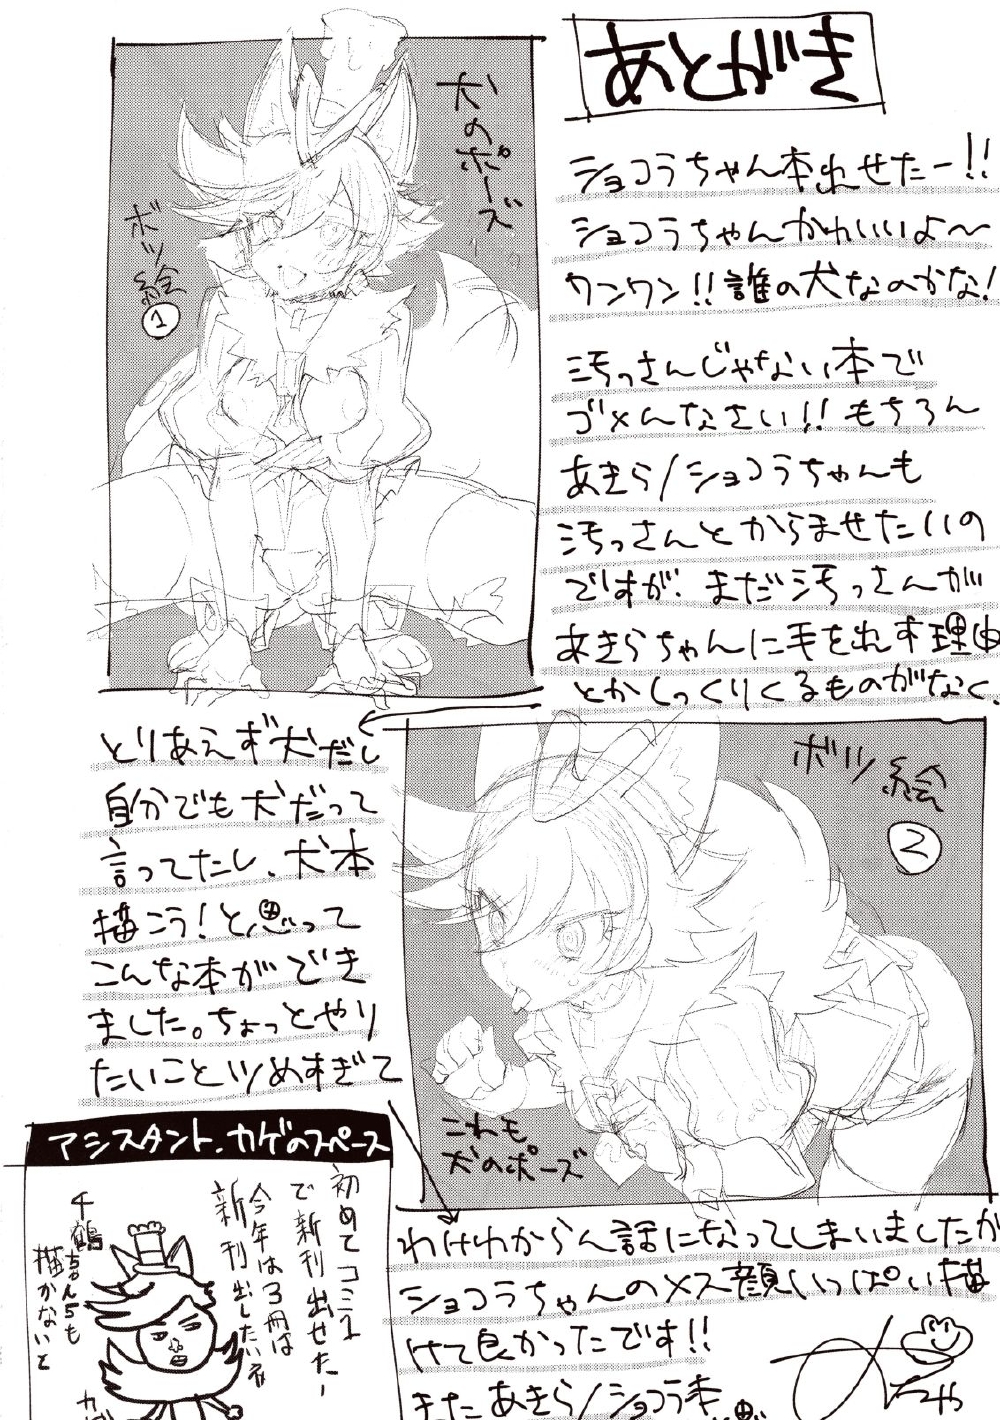 あとがき
ショコラちゃん本出せたー!!
ショコラちゃんかわいいよ〜
ワンワン!!誰の犬なのかな!
汚っさんじゃない本で
ゴメんなさい!!もちろん
あきら/ショコラちゃんも
汚っさんとからませたいの
ですが、まだ汚っさんが
あきらちゃんに手を出す理由
とかしっくりくるものがなく、
とりあえず犬だし
自分でも犬だって
言ってたし、犬本
描こう!と思って
こんな本ができ
ました。ちょっとやり
たいことツめすぎて
わけわからん話になってしまいましたが
ショコラちゃんのメス顔いっぱい描
けて良かったです!!
またあきら/ショコラ本
犬のポーズ
ボツ絵
1
ボツ絵
2
これも
犬のポーズ
アシスタント.カゲのスペース
初めてコミ1
で新刊出せたー
今年は3冊は
新刊出したいネ
千鶴ちゃんSも
描かないと